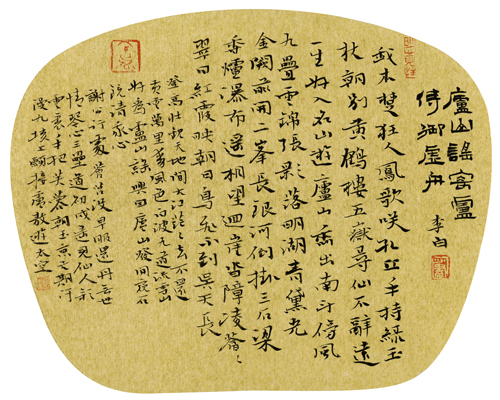 廬山謠寄盧
侍御虛舟
李白
我本楚狂人鳳歌咲孔丘手持綠玉
杖朝別黃鶴樓五嶽尋仙不辭遠
一生好入名山遊廬山秀出南斗傍風
九疊雲錦張影落明湖青黛光
金闕前開二峯長銀河倒掛三石梁
香爐瀑布遙相望迴崖沓障凌蒼〻
翠日紅霞映朝日鳥飛不到吳天長
登高壯觀天地間大江茫〻去不還
黃雲萬里動風色白波九道流雪山
好為廬山謠興因廬山發閒窺石
清我心
謝公行處蒼苔沒早服還丹無世
情琴心三疊道初成遙見仙人彩
雲裏手把芙蓉朝玉京先期汗
漫九垓上願接盧敖遊太